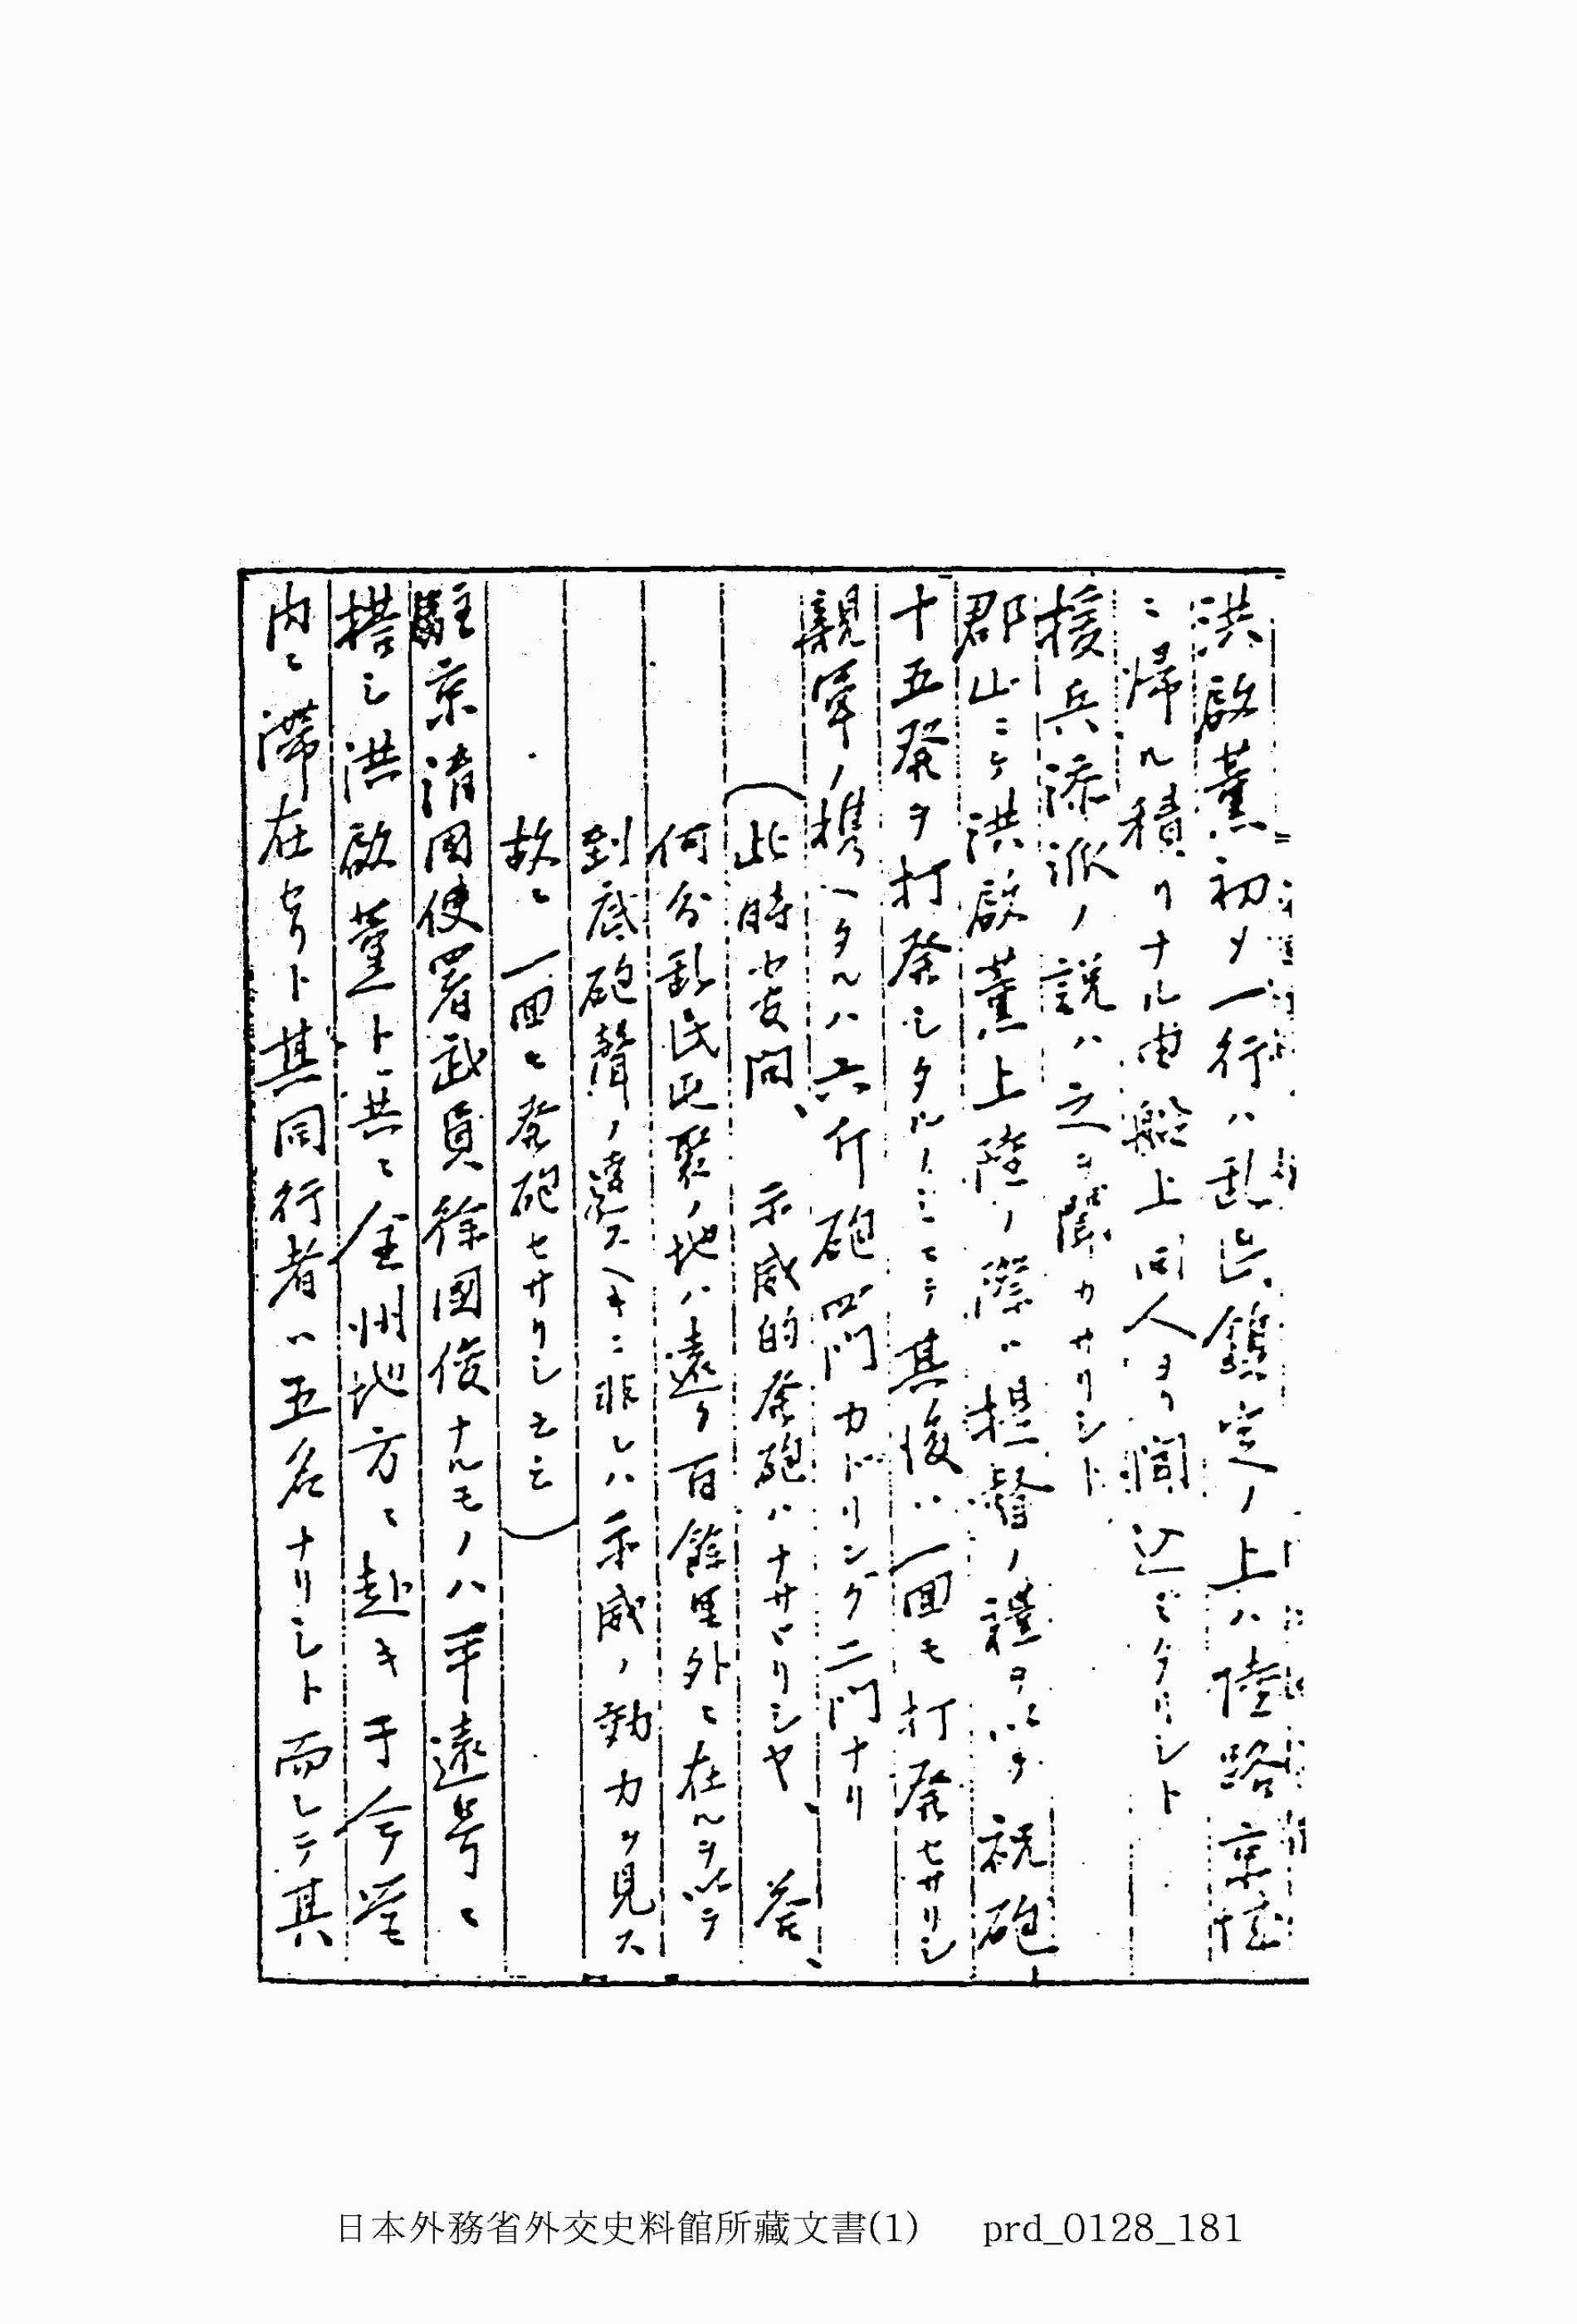 洪啟薫初メ一行ハ乱民鎮定ノ上ハ陸路京城
ニ帰ル積リナル由船上同人ヨリ聞込ミタリシト
援兵添派ノ説ハ之ヲ聞カサリシト
郡山ニテ洪啟薫上陸ノ際ハ提督ノ禮ヲ以テ祝砲
十五発ヲ打発シタルノミニテ其後ハ一回モ打発セサリシ
親軍ノ携ヘタルハ六斤砲四門カドリング二門ナリ
(此時安問、示威的発砲ハナサヾリシヤ、答
何分乱民屯聚ノ地ハ遠ク百餘里外ニ在ルヲ以テ
到底砲聲ノ達スヘキニ非レハ示威ノ効力ヲ見ス
故ニ一回モ発砲セサリシ云云)
駐京清国使署武員徐國俊ナルモノハ平遠号ニ
搭シ洪啟薫ト共ニ全州地方ニ赴キ于今営
内ニ滞在セリト其同行者ハ五名ナリシト而シテ其
日本外務省外交史料館所藏文書(1) prd_0128_181